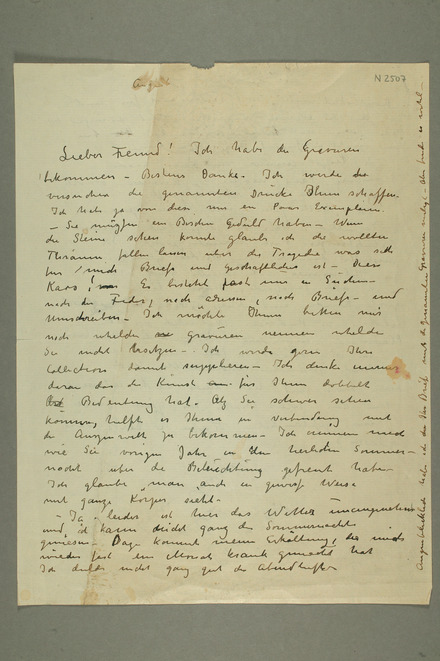 August
N 2507
Lieber Freund! Ich habe die Gravuren
bekommen – Bestens Danke. Ich werde
versuchen die genannten Drucke Ihnen schaffen.
Ich habe ja von diese nur en Paar Exemplaren.
– Sie müssen en Bischen Geduld haben – Wenn
die Steine sehen konnte glaube ich die wollten
Thränen fallen lassen uber die Tragedie was sich
fur mich Briefe und geschaftliches ist – Dies
Kaos! Es besteht fast nur en Suchen
nach der Feder, nach adressen, nach Briefe – und
Umschreiben – Ich möchte Ihnen bitten mir
noch Gravuren nennen
Sie nicht besitzen – Ich werde gern Ihre
Collection damit suppleren – Ich denke immer
daran das die Kunst für Ihnen dobbelt
Bedeutung hat. Als Sie schwer sehen
können, hilft es Ihnen in verbindung mit
der Aussenwelt zu bekommen – Ich erinnere mich
wie Sie vorigen Jahr in der herlichen Sommer-
nacht uber die Beleuchtung gefreut habe
Ich glaube man auch in gewisse Weise
mit ganze Korper sieht –
– Ja leider ist hier das Wetter
und ich kann nicht ganz die Sommernacht
geniesen – Dazu kommt meine Erkaltung, die mich
wieder fast en Monat krank gemacht hat
Ich nicht ganz gut die Abendlufte
Augenblicklich habe ich den Brief mit die genannten Gravuren – finde es